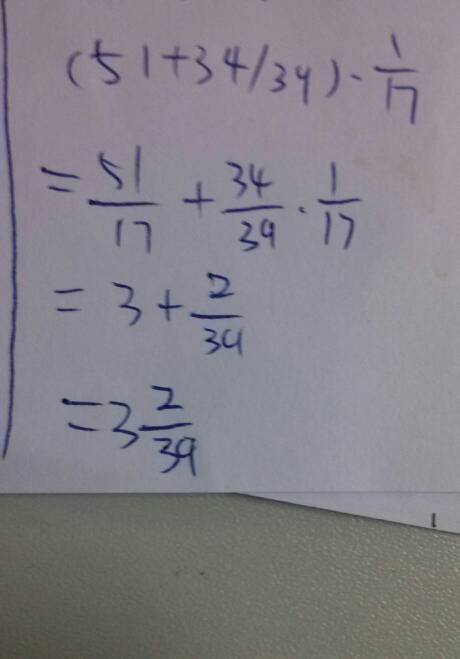 (51+34/39)·1/17
=51/17+34/39·1/17
=3+2/39
=3 2/39